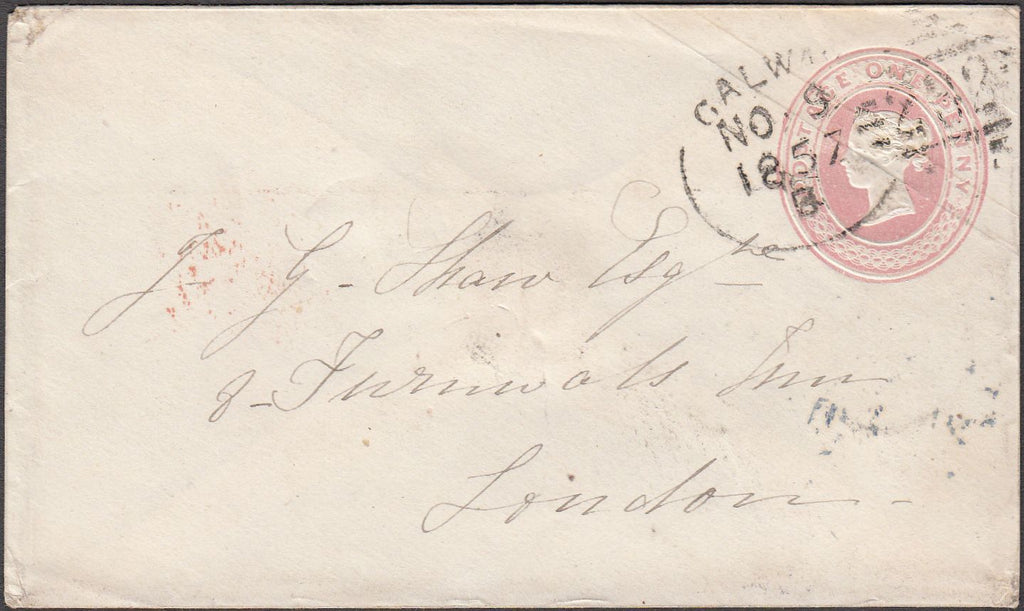 POSTAGE ONE PENNY
GALWA
NO 9
1857
J. G. Shaw Esqre
8 - Furnivals Inn
London